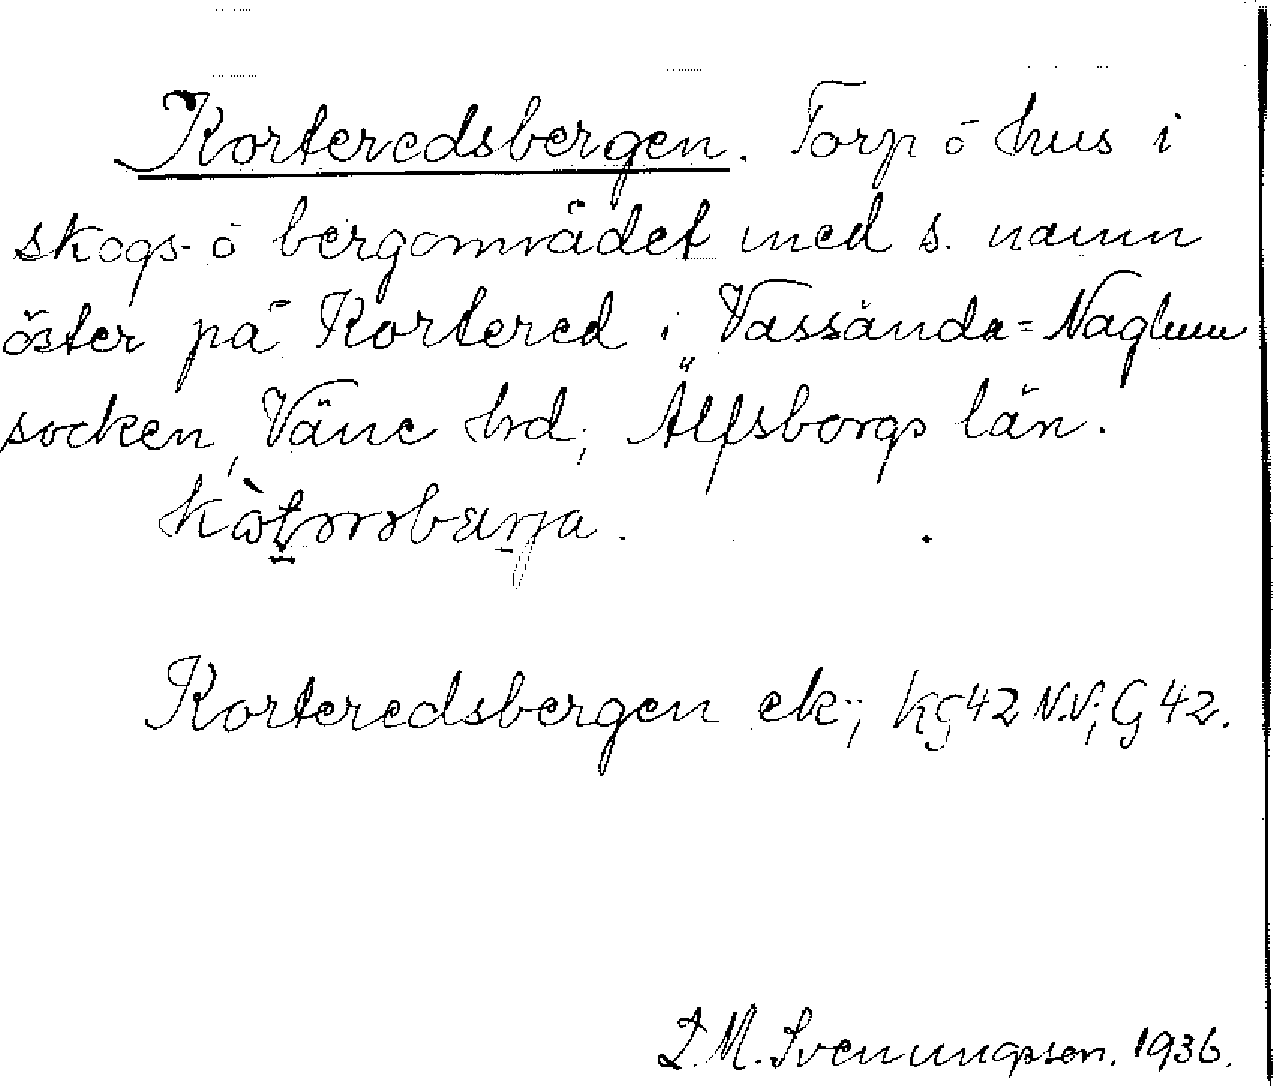 Korteredsbergen. Torp o hus i
skogs- o bergområdet med s. namn
öster på Kortered i Vassända-Naglum
socken, Väne hrd; Älfsborgs län.

Korteredsbergen ek.; KG42 N.V; G 42.
M. Svenungsson. 1936.